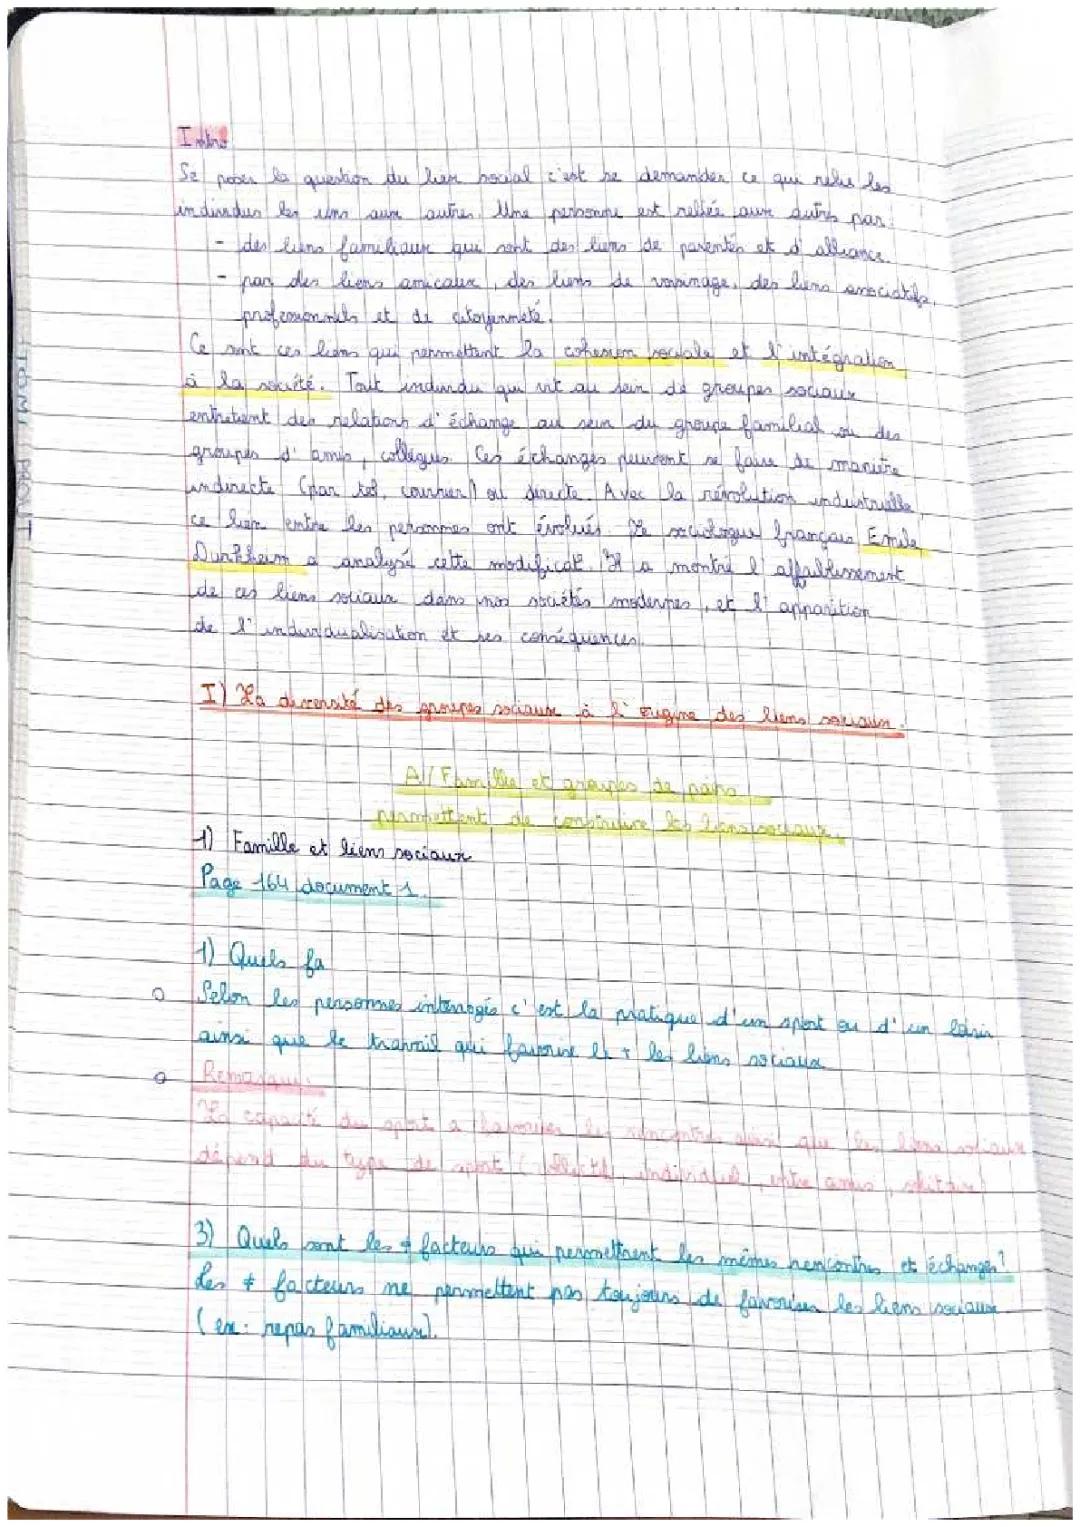 Intro
Se poser la question du lien social c'est se demander ce qui relie les
individus les uns aux autres. Une personne est reliée aux autres par:
- des liens familiaux qui sont des liens de parentés et d'alliance.
- par des liens amicaux, des liens de voisinage, des liens associatifs,
professionnels et de citoyenneté.
Ce sont ces liens qui permettent la cohésion sociale et l'intégration
à la société. Tout individu qui vit au sein de groupes sociaux
entretient des relations d'échange au sein du groupe familial ou des
groupes d'amis, collègues. Ces échanges peuvent se faire de manière
indirecte (par tel, courrier) ou directe. Avec la révolution industrielle,
ce lien entre les personnes ont évolués. Le sociologue français Emile
Durkheim a analysé cette modificat°. Il a montré l'affaiblissement
de ces liens sociaux dans nos sociétés modernes, et l'apparition
de l'individualisation et ses conséquences.
I) La diversité des groupes sociaux à l'origine des liens sociaux.
A/ Famille et groupes de pairs
permettent de construire les liens sociaux.
1) Famille et liens sociaux
Page 164 document 1.
1) Quels fa
Selon les personnes interrogés c'est la pratique d'un sport ou d'un loisir
ainsi que le travail qui favorise le + les liens sociaux
Remarque:
La capacité du sport a favoriser les rencontres ainsi que les liens sociaux
dépend du type de sport (collectif, individuel, entre amis, solitaire)
3) Quels sont les ≠ facteurs qui permettent les mêmes rencontres et échanges?
Les ≠ facteurs ne permettent pas toujours de favoriser les liens sociaux
(ex: repas familiaux).